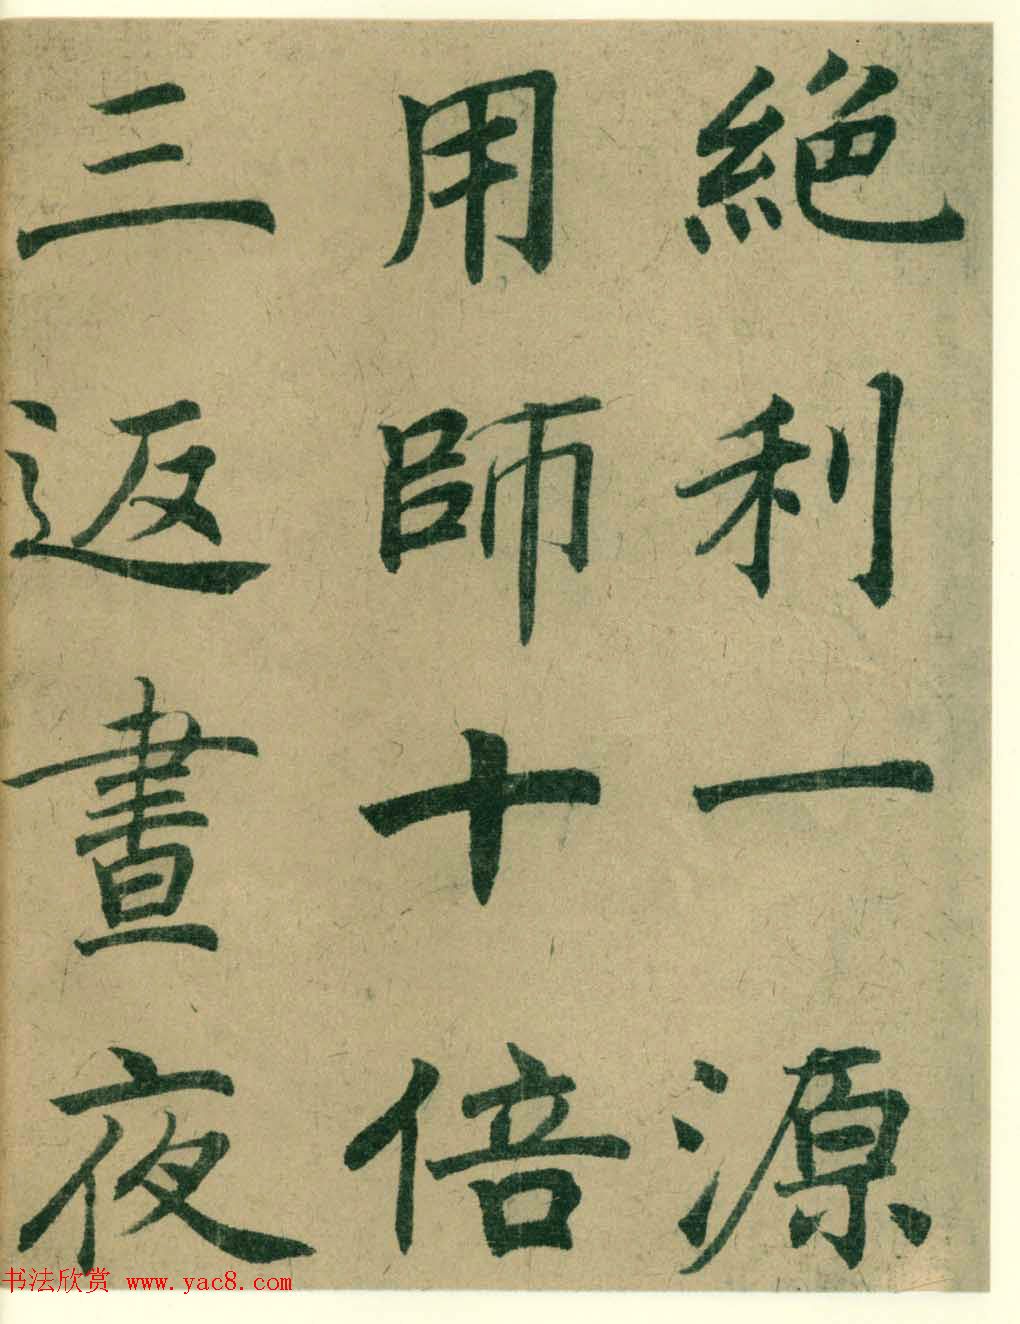 絶利一源
用師十倍
三返晝夜
书法欣赏 www.yac8.com